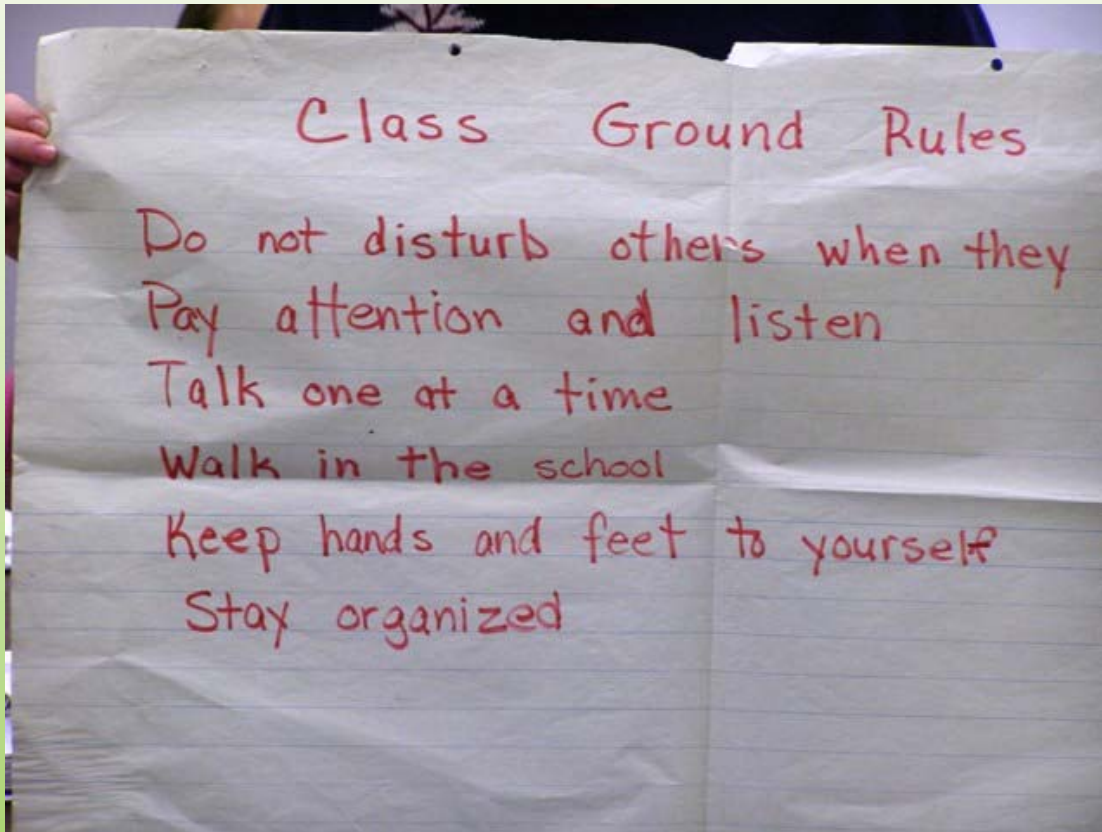 Class Ground Rules
Do not disturb others when they
Pay attention and listen
Talk one at a time
Walk in the school
Keep hands and feet to yourself
Stay organized